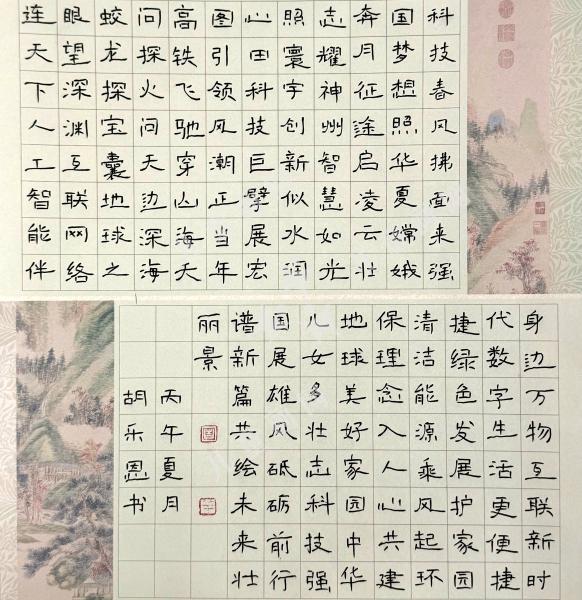 科技春风拂面来强
国梦想照华夏嫦娥
奔月征途启凌云壮
志耀神州智慧如光
照寰宇创新似水润
心田科技巨擘展宏
图引领风潮正当年
高铁飞驰穿山海天
问探火问天边深海
蛟龙探宝囊地球之
眼望深渊互联网络
连天下人工智能伴
身边万物互联新时
代数字生活更便捷
捷绿色发展护家园
清洁能源乘风起环
保理念入人心共建
地球美好家园中华
儿女多壮志科技强
国展雄风砥砺前行
谱新篇共绘未来壮
丽景
丙午夏月
胡乐恩书